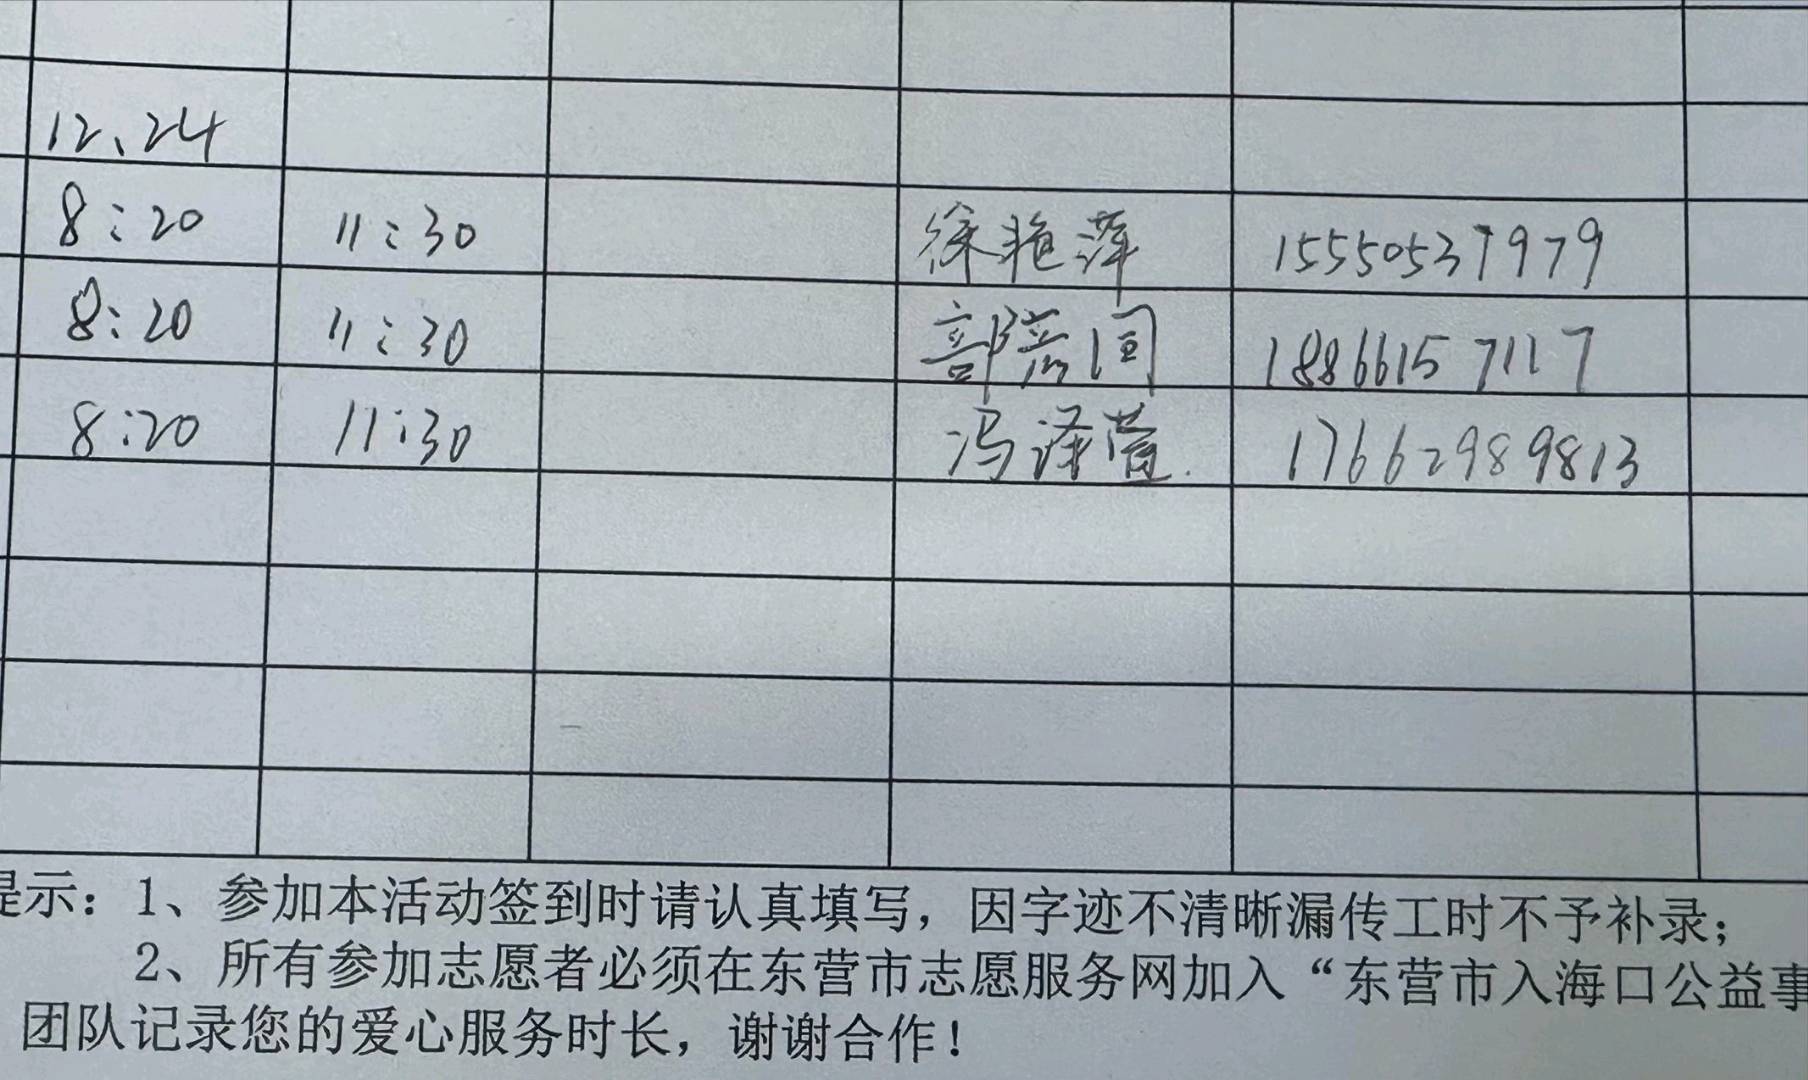 12、24
8:20 11:30 徐艳萍 15550537979
8:20 11:30 18866157117
8:20 11:30 冯泽萱 17662989813
提示：1、参加本活动签到时请认真填写，因字迹不清晰漏传工时不予补录；
2、所有参加志愿者必须在东营市志愿服务网加入“东营市入海口公益事
团队记录您的爱心服务时长，谢谢合作！